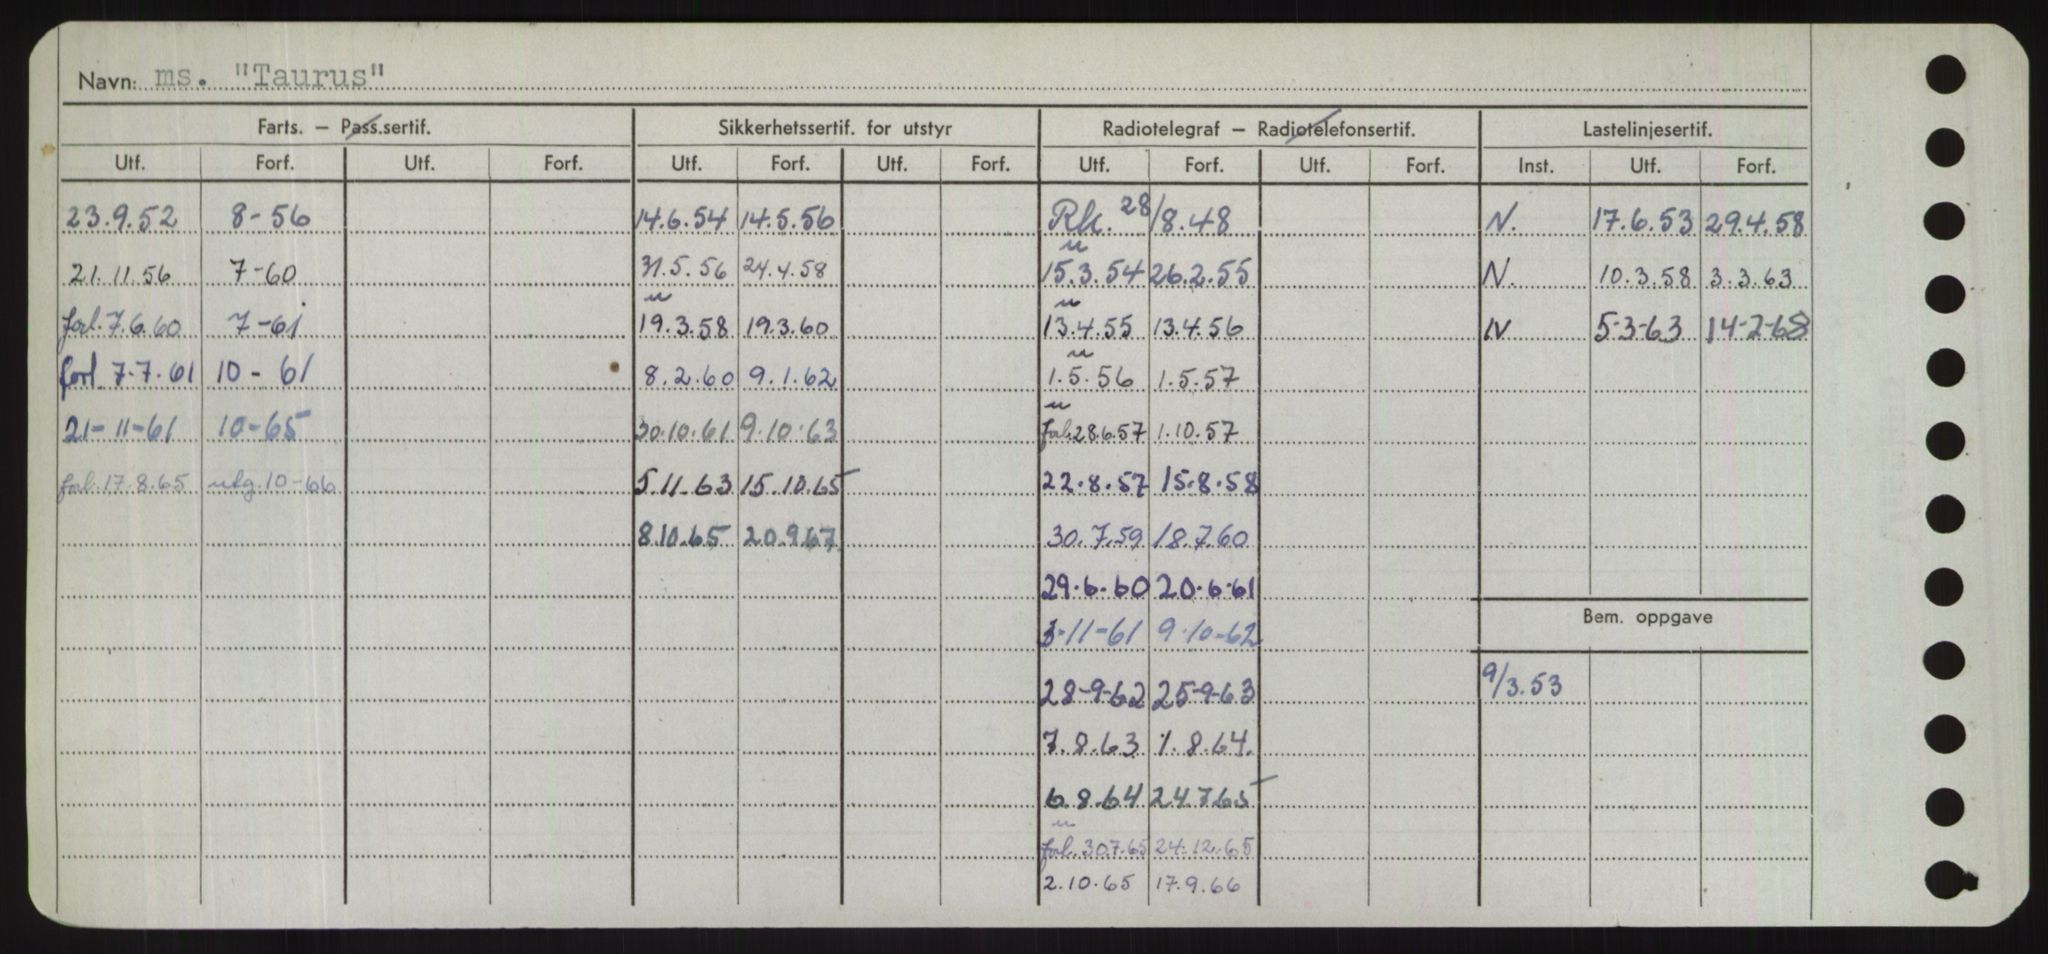 Navn: ms. "Taurus"
Farts. – Pass.sertif. Sikkerhetssertif. for utstyr Radiotelegraf – Radiotelefonsertif. Lastelinjesertif.
Utf. Forf. Utf. Forf. Utf. Forf. Utf. Forf. Utf. Forf. Utf. Forf. Inst. Utf. Forf.
23.9.52 8-56 14.6.54 14.5.56 Rk. 28/8.48 N. 17.6.53 29.4.58
21.11.56 7-60 31.5.56 24.4.58 15.3.54 26.2.55 N. 10.3.58 3.3.63
forl. 7.6.60 7-61 19.3.58 19.3.60 13.4.55 13.4.56 N 5-3-63 14-2-68
forl. 7.7.61 10-61 8.2.60 9.1.62 1.5.56 1.5.57
21-11-61 10-65 30.10.61 9.10.63 forl. 28.6.57 1.10.57
forl. 17.8.65 utg. 10-66 5.11.63 15.10.65 22.8.57 15.8.58
8.10.65 20.9.67 30.7.59 18.7.60
29.6.60 20.6.61
Bem. oppgave
3-11-61 9-10-62
9/3.53
28-9-62 25-9-63
7.8.63 1.8.64.
6.8.64 24.7.65
forl. 30.7.65 24.12.65
2.10.65 17.9.66